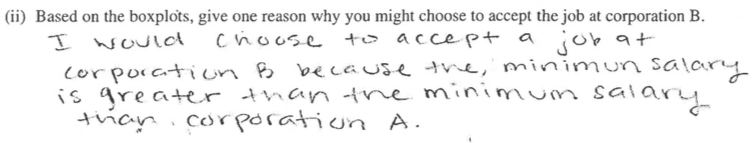 (ii) Based on the boxplots, give one reason why you might choose to accept the job at corporation B.
I would choose to accept a job at
corporation B because the, minimun salary
is greater than the minimum salary
than corporation A.